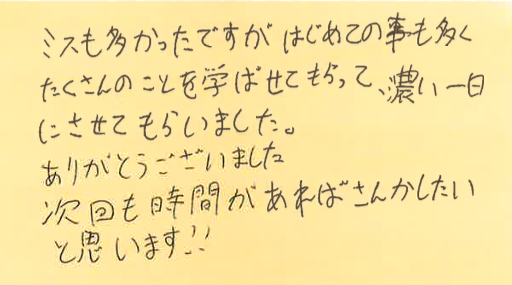 ミスも多かったですが はじめての事も多く
たくさんのことを学ばせてもらって、濃い一日
にさせてもらいました。
ありがとうございました
次回も時間があればさんかしたい
と思います!!